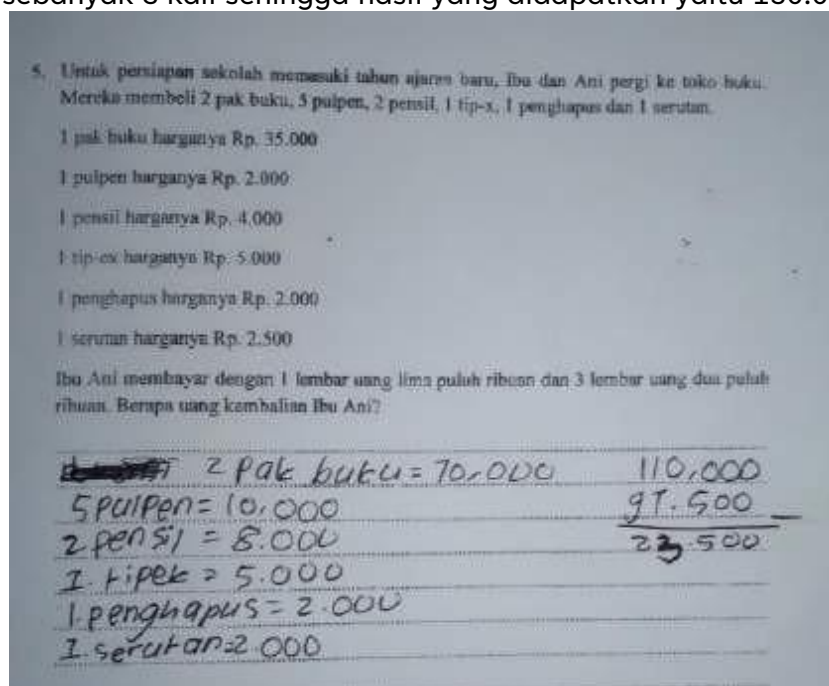 5. Untuk persiapan sekolah memasuki tahun ajaran baru, Ibu dan Ani pergi ke toko buku.
Mereka membeli 2 pak buku, 5 pulpen, 2 pensil, 1 tip-x, 1 penghapus dan 1 serutan.
1 pak buku harganya Rp. 35.000
1 pulpen harganya Rp. 2.000
1 pensil harganya Rp. 4.000
1 tip-ex harganya Rp. 5.000
1 penghapus harganya Rp. 2.000
1 serutan harganya Rp. 2.500
Ibu Ani membayar dengan 1 lembar uang lima puluh ribuan dan 3 lembar uang dua puluh
ribuan. Berapa uang kembalian Ibu Ani?
2 pak buku = 70.000
5 pulpen = 10.000
2 pensil = 8.000
1. tipek = 5.000
1. penghapus = 2.000
1. serutan = 2.000
110.000
97.500
23.500